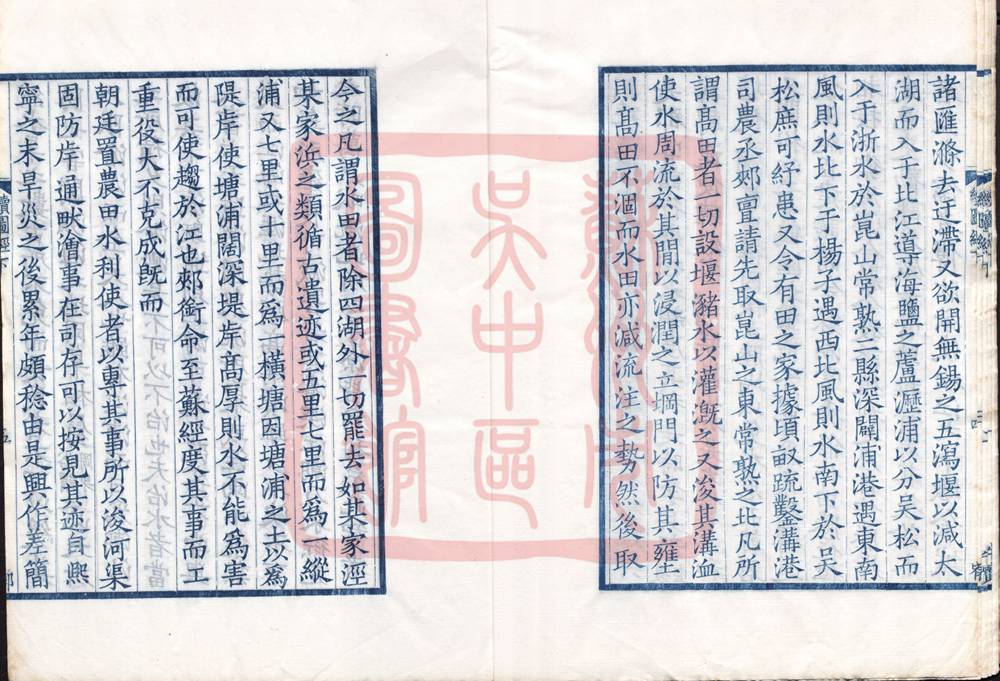 諸匯滌去迂滯又欲開無錫之五瀉堰以減太
湖而入于北江導海鹽之蘆瀝浦以分吳松而
入于浙水於崑山常熟二縣深闢浦港遇東南
風則水北下于楊子遇西北風則水南下於吳
松庶可紓患又今有田之家據頃畝䟽鑿溝港
司農丞郟亶請先取崑山之東常熟之北凡所
謂髙田者一切設堰瀦水以灌漑之又浚其溝洫
使水周流於其間以浸潤之立堈門以防其壅
則髙田不涸而水田亦減流注之勢然後取
今之凡謂水田者除四湖外一切罷去如某家涇
某家浜之類循古遺迹或五里七里而爲一縱
浦又七里或十里而爲一橫塘因塘浦之土以爲
隄岸使塘浦闊深堤岸髙厚則水不能爲害
而可使趨於江也郟銜命至蘇經度其事而工
重役大不克成旣而
朝廷置農田水利使者以專其事所以浚河渠
固防岸通畎澮事在司存可以按見其迹自熈
寧之末旱災之後累年頗稔由是興作差簡
續圖經下
五
吳中區
圖書館